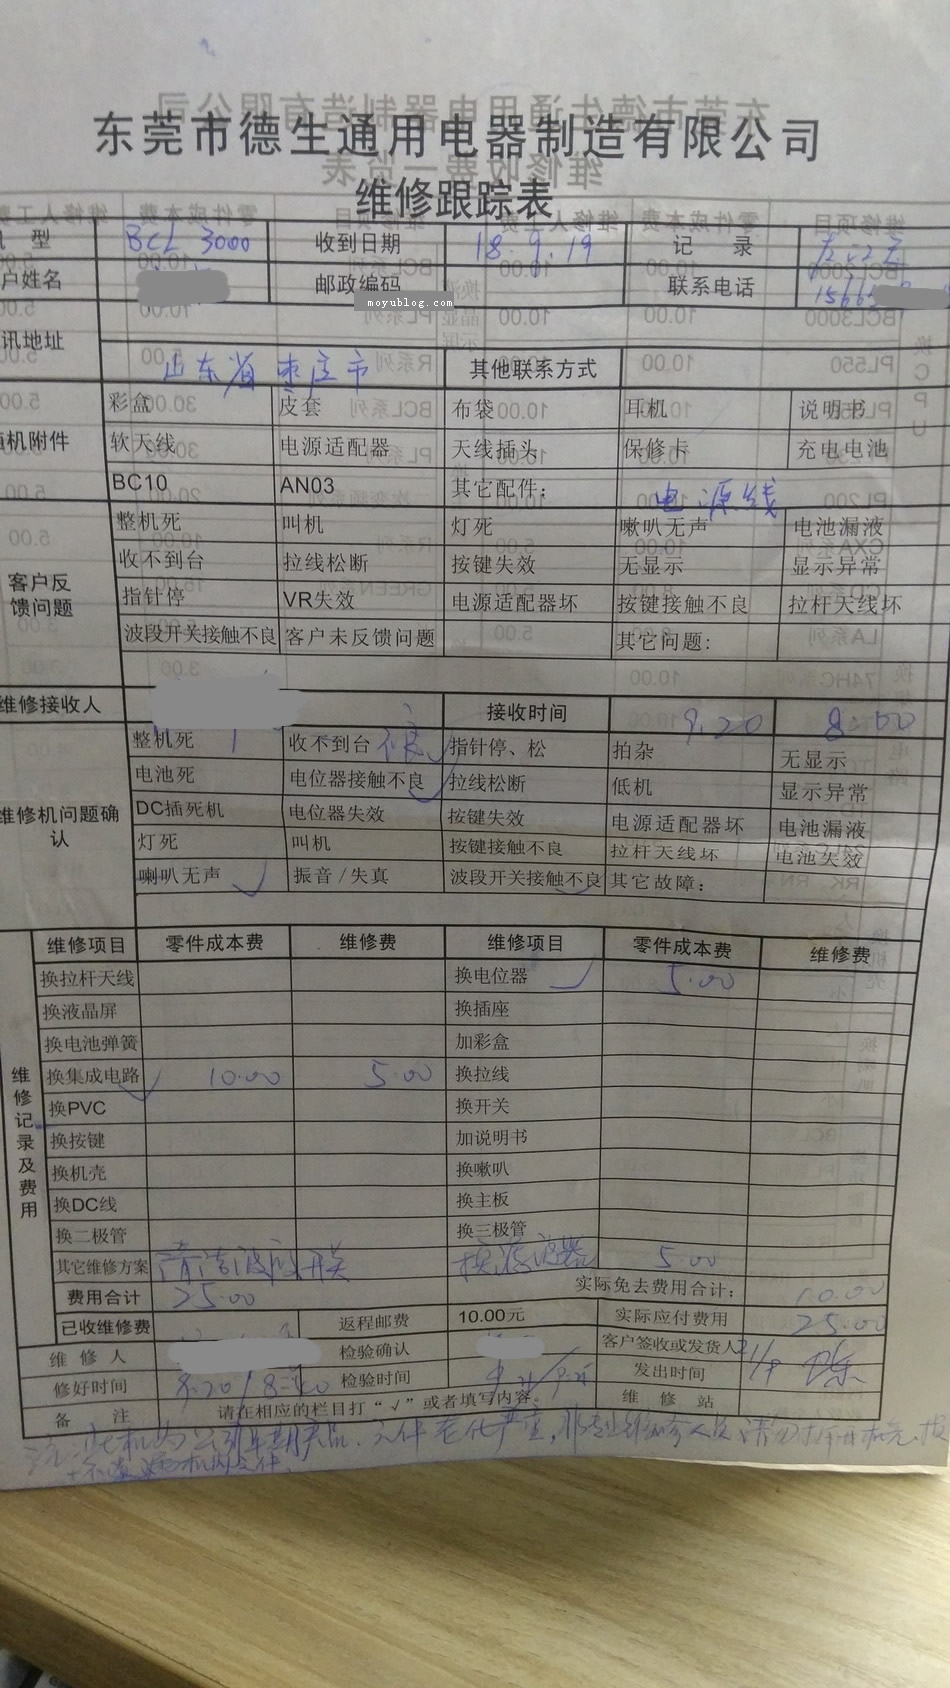 东莞市德生通用电器制造有限公司
维修跟踪表
型 BCL 3000 收到日期 18.9.19 记 录
户姓名 邮政编码 联系电话
moyublog.com
讯地址 山东省枣庄市 其他联系方式
彩盒 皮套 布袋 耳机 说明书
机附件 软天线 电源适配器 天线插头 保修卡 充电电池
BC10 AN03 其它配件: 电源线
整机死 叫机 灯死 喇叭无声 电池漏液
收不到台 拉线松断 按键失效 无显示 显示异常
客户反馈问题 指针停 VR失效 电源适配器坏 按键接触不良 拉杆天线坏
波段开关接触不良 客户未反馈问题 其它问题:
维修接收人 接收时间 9.20 8:00
整机死 收不到台 指针停、松 拍杂 无显示
电池死 电位器接触不良 ✓ 拉线松断 低机 显示异常
维修机问题确认 DC插死机 电位器失效 按键失效 电源适配器坏 电池漏液
灯死 叫机 按键接触不良 拉杆天线坏 电池失效
喇叭无声 ✓ 振音/失真 波段开关接触不良 ✓ 其它故障:
维修记录及费用
维修项目 零件成本费 维修费 维修项目 零件成本费 维修费
换拉杆天线 换电位器 ✓ 5.00
换液晶屏 换插座
换电池弹簧 加彩盒
换集成电路 ✓ 10.00 5.00 换拉线
换PVC 换开关
换按键 加说明书
换机壳 换喇叭
换DC线 换主板
换二极管 换三极管
其它维修方案 清洁波段开关 换滤波器 5.00
费用合计 25.00 实际免去费用合计: 10.00
已收维修费 返程邮费 10.00元 实际应付费用 25.00
维 修 人 检验确认 客户签收或发货人
修好时间 检验时间 发出时间 21/9
备 注 请在相应的栏目打“√”或者填写内容。 维 修 站
注:此机为 早期产品,元件老化严重,非专业维修人员请勿拆开机壳,